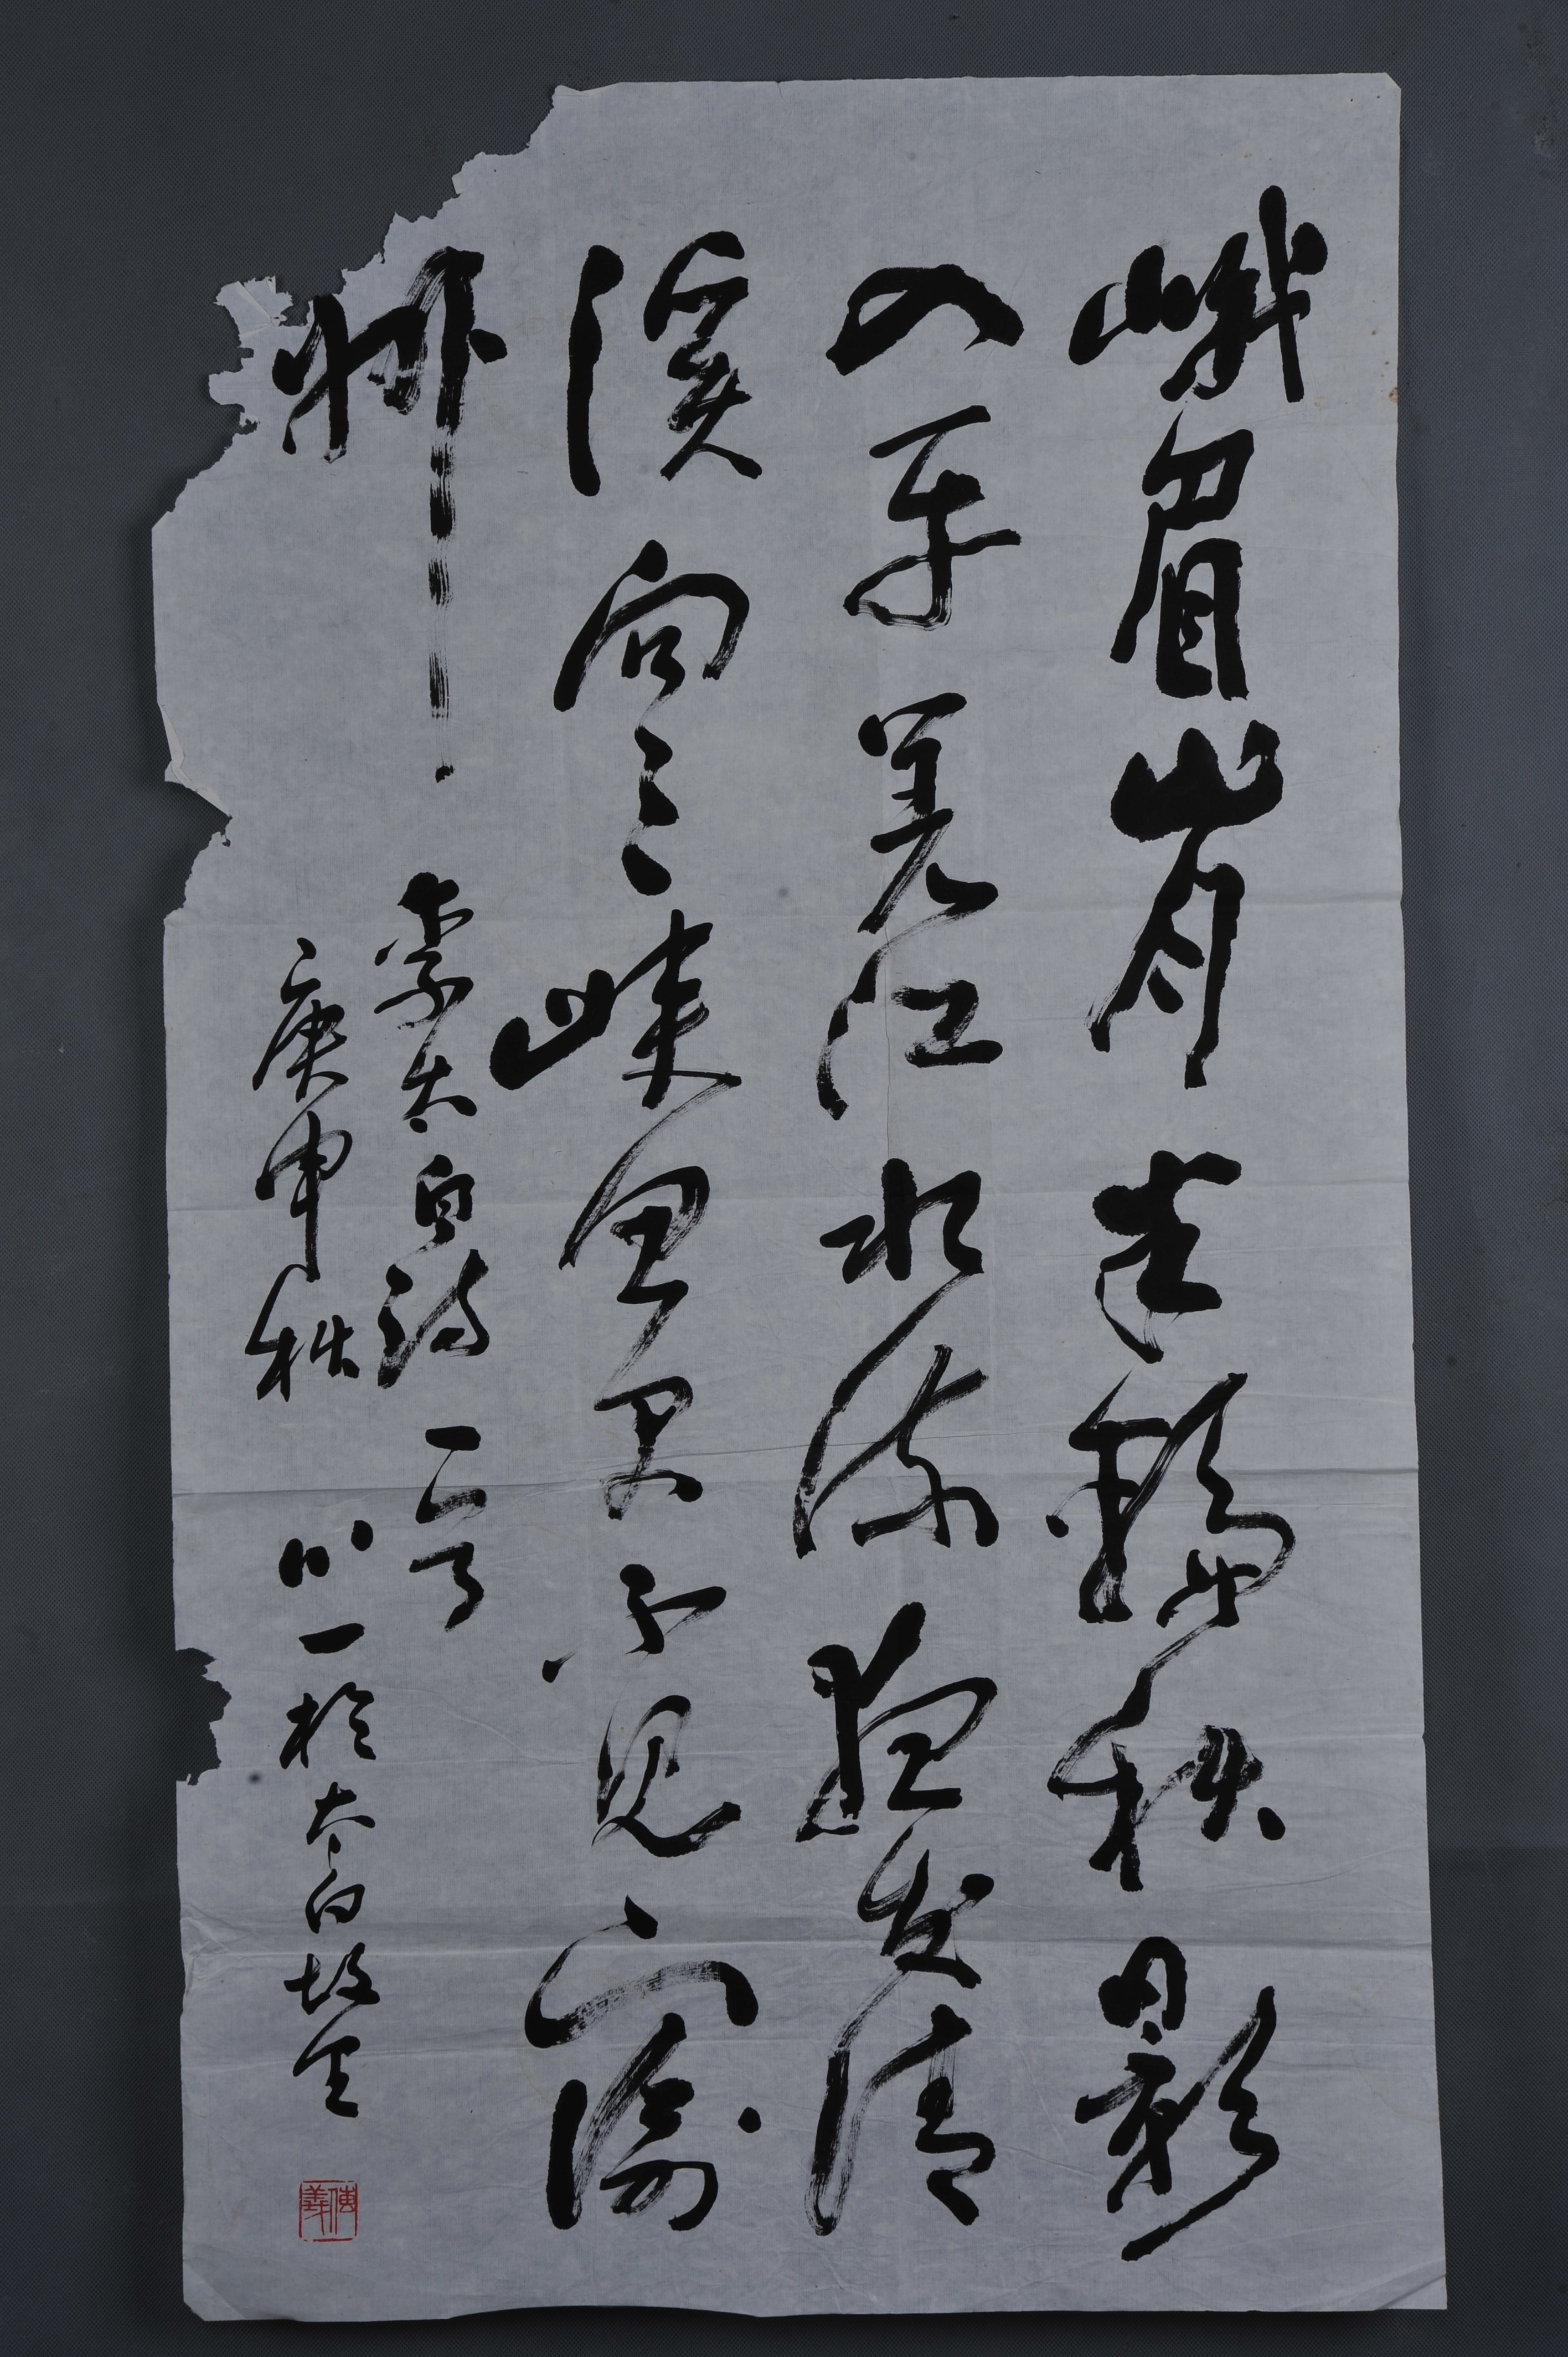 峨眉山月半輪秋影
入平羌江水流夜发清
溪向三峡思君不见下渝
州
李太白诗一首
庚申秋 一於太白故里